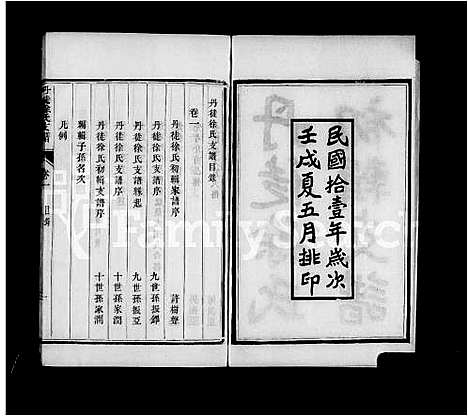 民國拾壹年歲次
壬戌夏五月排印
丹徒徐氏支譜目錄
卷一
丹徒徐氏初輯家譜序 許樹聲
丹徒徐氏支譜序 九世孫振鐸
丹徒徐氏支譜緣起 九世孫振亞
丹徒徐氏支譜序 十世孫家潤
丹徒徐氏初輯支譜序 十世孫家潤
編輯子孫名次
凡例
丹徒徐氏支譜
卷一
目錄
FamilySearch